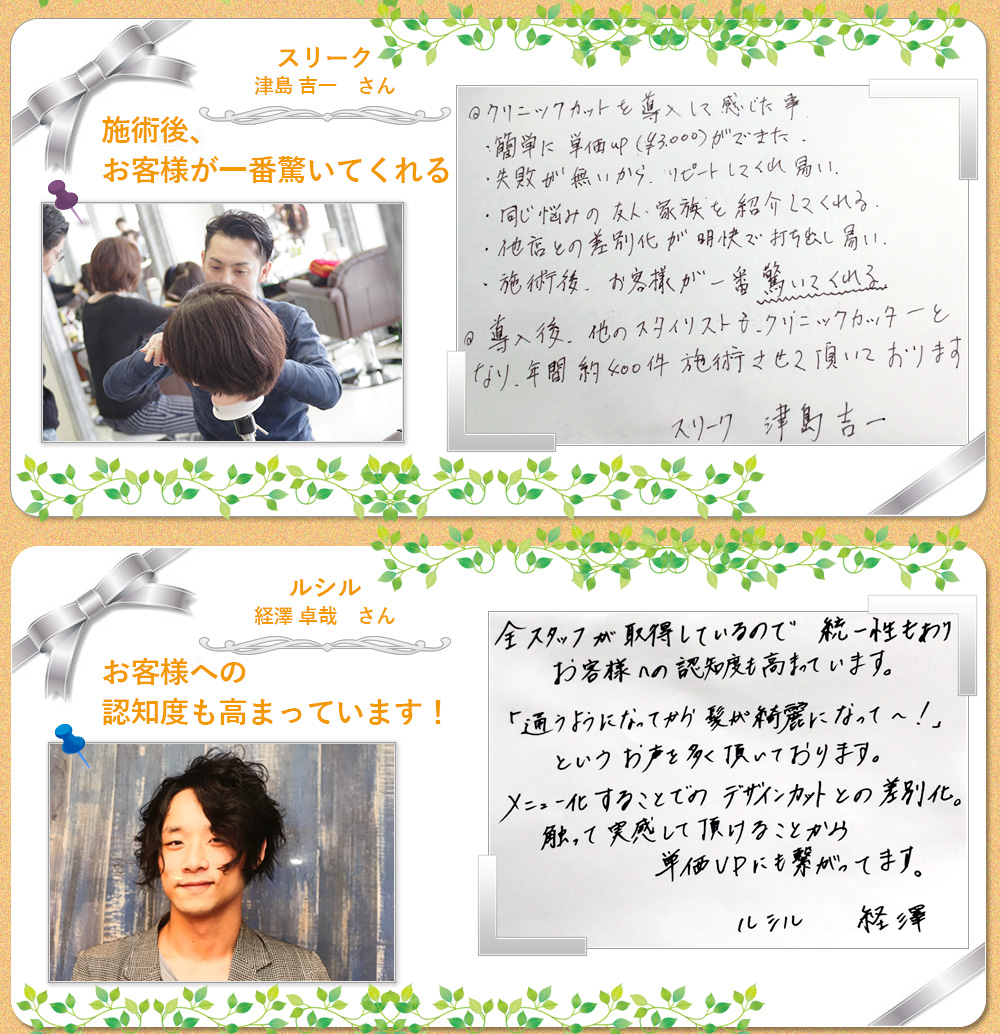 スリーク
津島 吉一 さん
施術後、
お客様が一番驚いてくれる
◎クリニックカットを導入して感じた事
・簡単に単価up(¥3.000)ができた.
・失敗が無いから、リピートしてくれ易い.
・同じ悩みの友人、家族を紹介してくれる.
・他店との差別化が明快で打ち出し易い.
・施術後、お客様が一番驚いてくれる
◎導入後、他のスタイリストも、クリニックカッターと
なり、年間約400件施術させて頂いております
スリーク 津島吉一
ルシル
経澤 卓哉 さん
お客様への
認知度も高まっています！
全スタッフが取得しているので 統一性もあり
お客様への認知度も高まっています。
「通うようになってから髪が綺麗になって～！」
というお声を多く頂いております。
メニュー化することでの デザインカットとの差別化。
触って実感して頂けることから
単価UPにも繋がってます。
ルシル 経澤